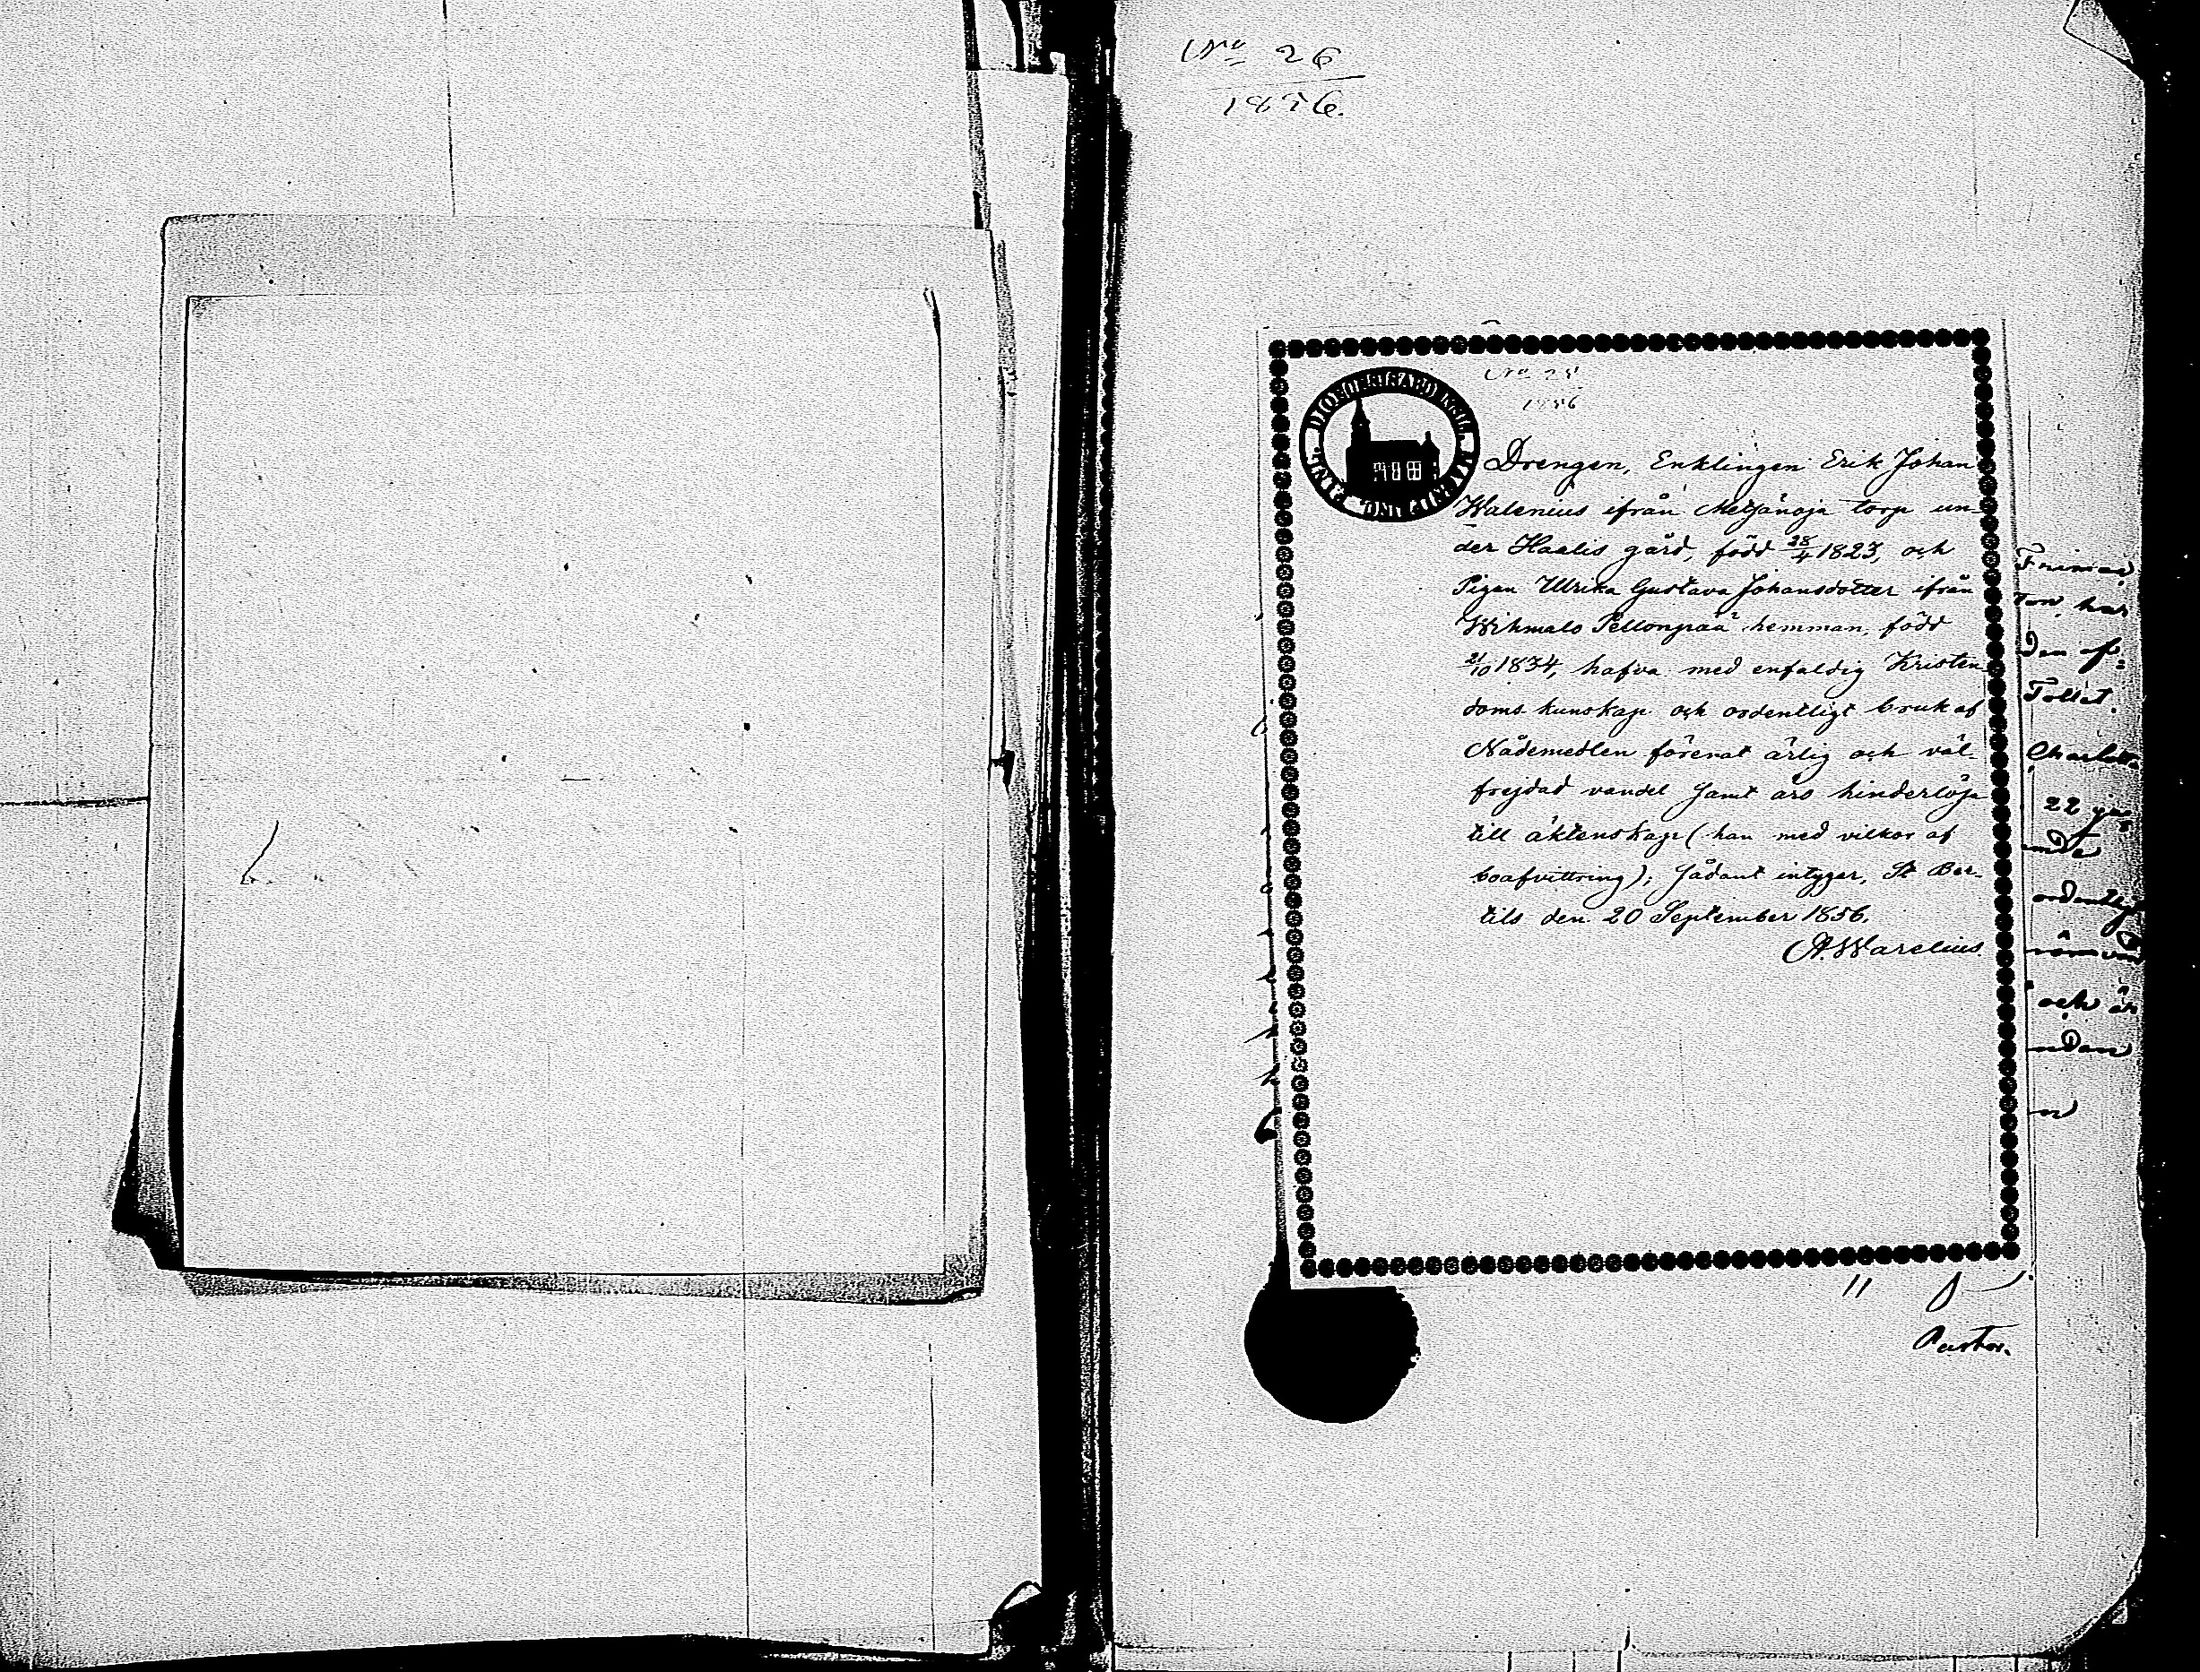 No 26
1856.
No 28
1856
Drengen, Enklingen Erik Johan
Walenius ifrån Metsänoja torp un-
der Haalis gård, född 28/4 1823, och
Pigan Ulrika Gustava Johansdotter ifrån
Wihmalo Pellonpää hemman, född
21/10 1834, hafva med enfaldig Kristen
doms kunskap och ordentligt bruk af
Nådemedlen förenat ärlig och väl-
frejdad vandel samt äro hinderlösa
till äktenskap (han med vilkor af
boafvittring); sådant intygar, St Ber-
tils den 20 September 1856.
A. Warelius.
har
den
Charlott
22
ordentlig
och är
Pastor.